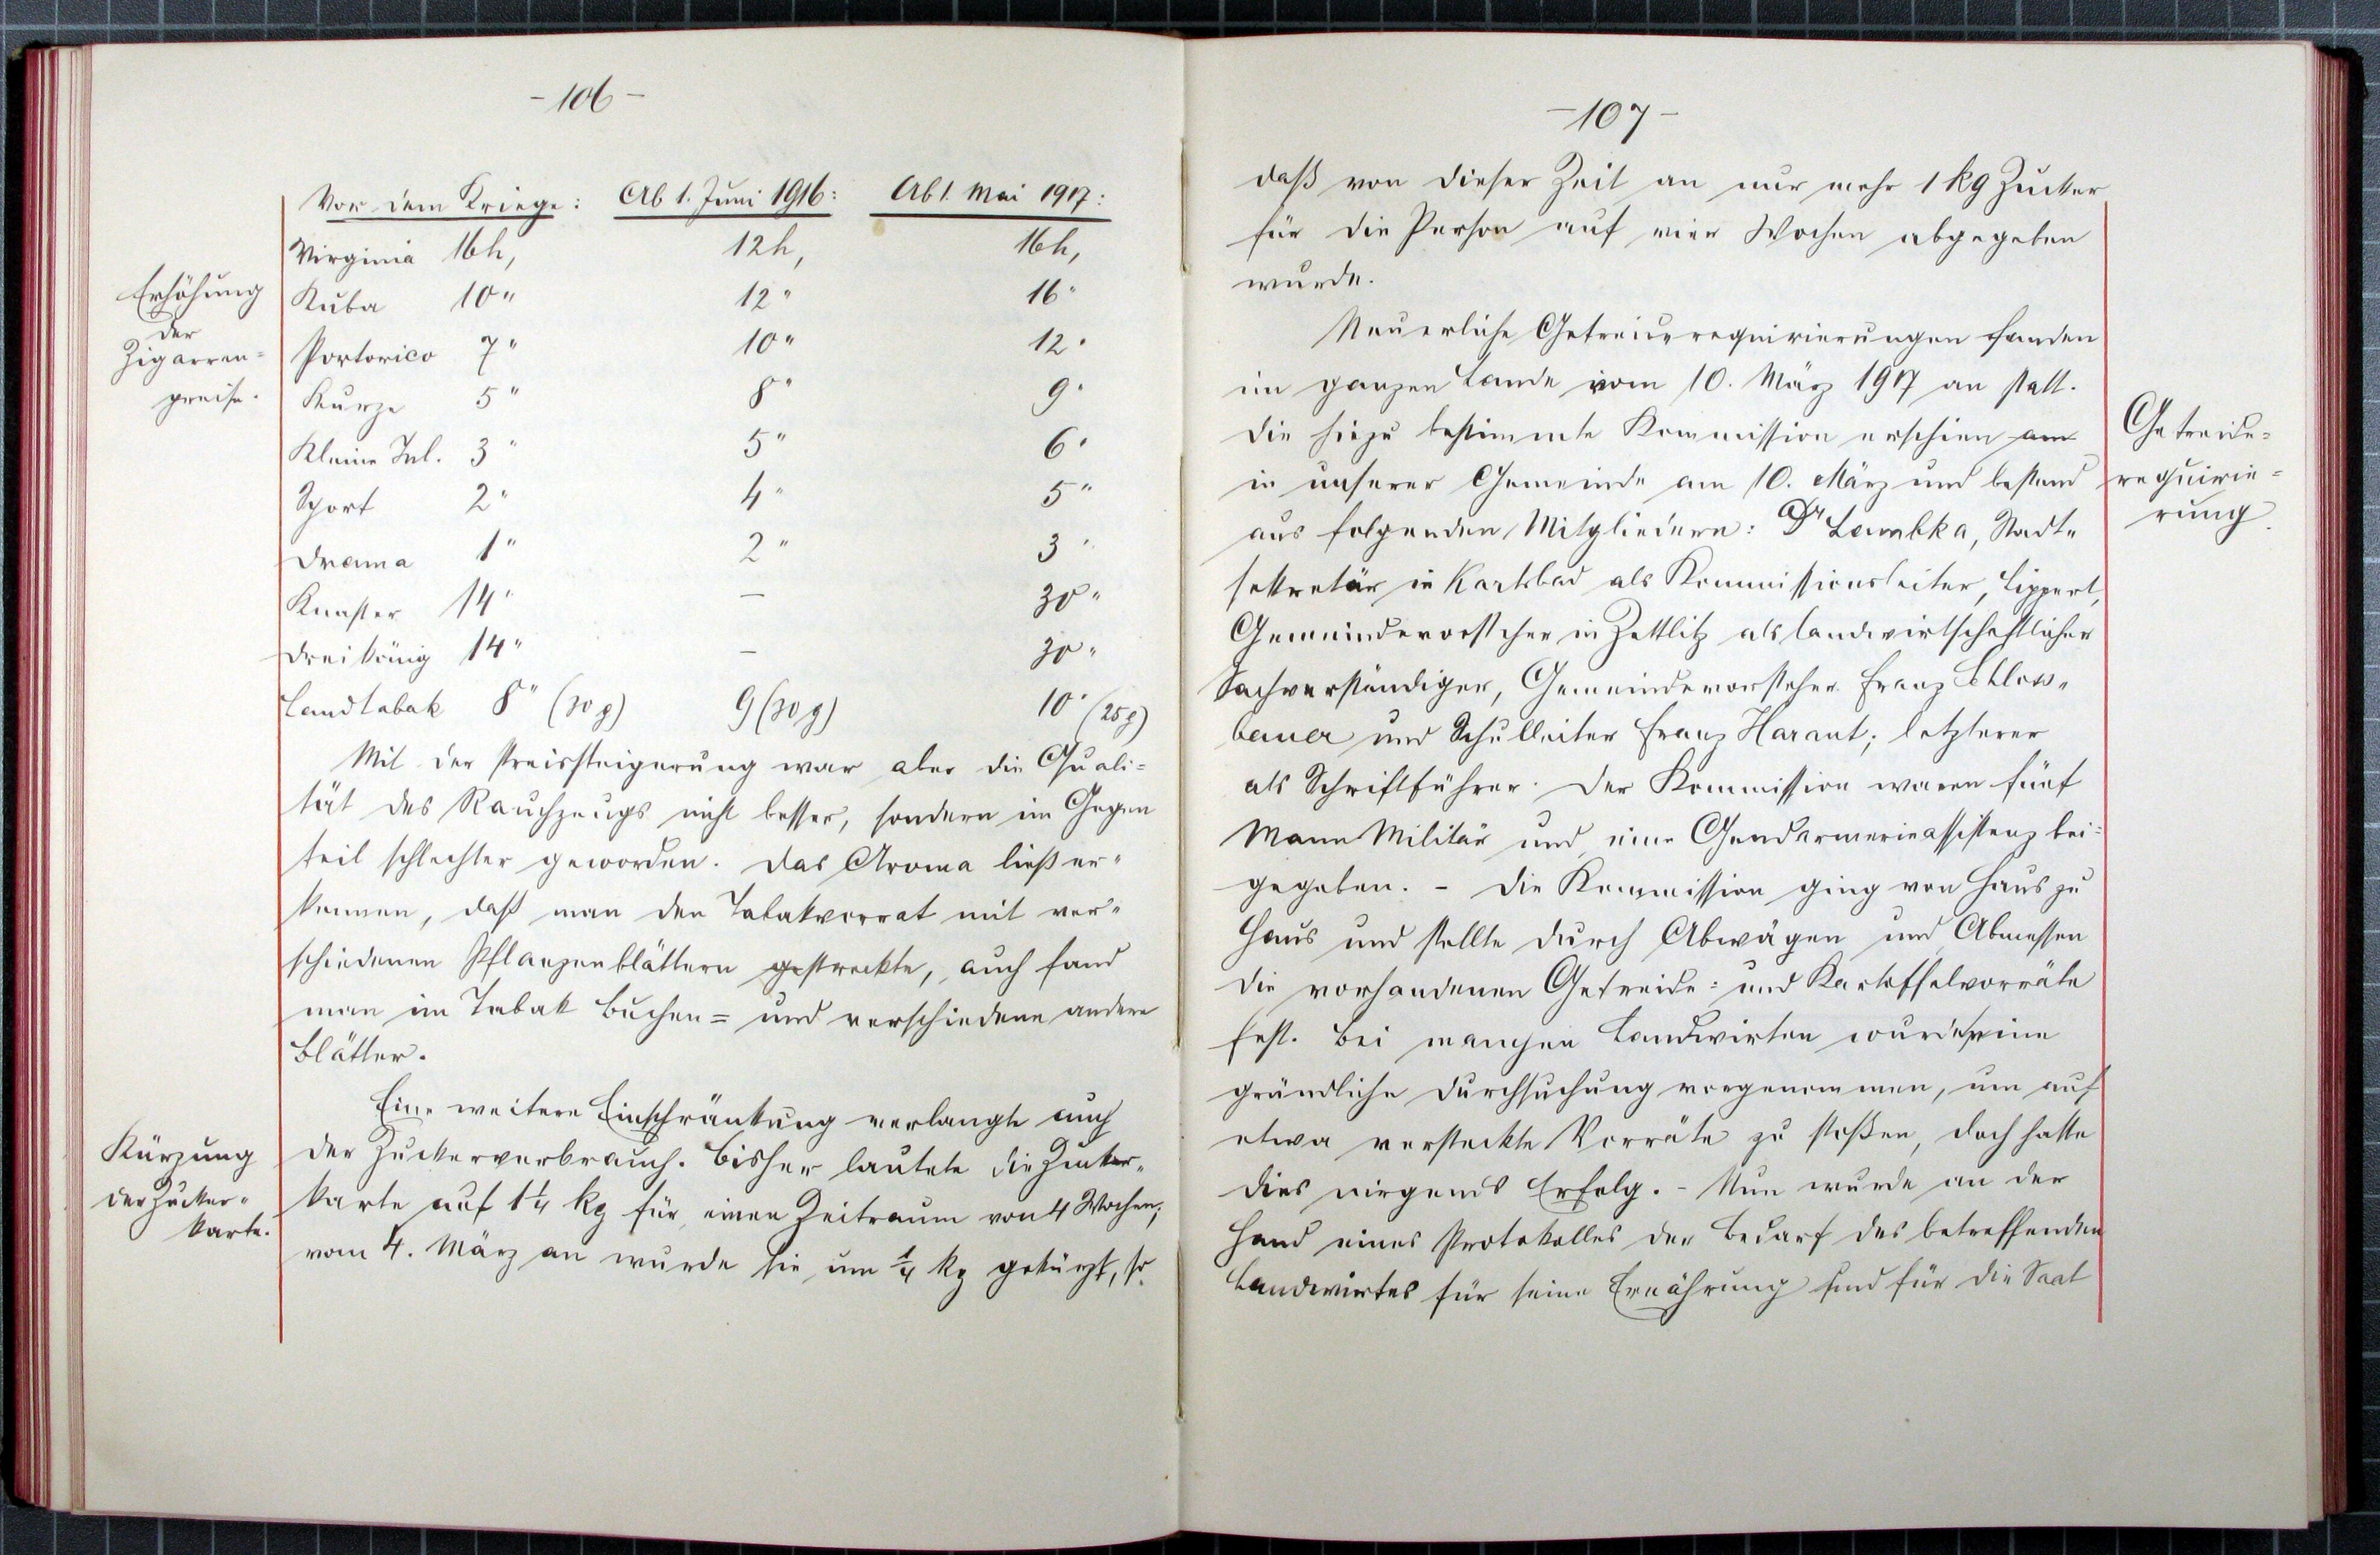 - 106 -
Vor dem Kriege: Ab 1. Juni 1916: Ab 1. Mai 1917:
Virginia 16h, 12h, 16h,
Kuba 10" 12" 16"
Portorico 7" 10" 12"
Kurze 5" 8" 9"
Kleine Inl. 3" 5" 6"
Sport 2" 4" 5"
Drama 1" 2" 3"
Knaster 14" — 30"
Dreikönig 14" — 30"
Landtabak 8" (30 g) 9 (30 g) 10" (25 g)
Erhöhung
der
Zigarren=
preise.
Mit der Preissteigerung war aber die Quali=
tät des Rauchzeugs nicht besser, sondern im Gegen
teil schlechter geworden. Das Aroma ließ er=
kennen, daß man den Tabakvorrat mit ver=
schiedenen Pflanzenblättern gestreckte, auch fand
man im Tabak Buchen= und verschiedene andere
Blätter.
Eine weitere Einschränkung verlangte auch
der Zuckerverbrauch. Bisher lautete die Zucker=
karte auf 1¼ kg für einen Zeitraum von 4 Wochen;
vom 4. März an wurde sie um ¼ kg gekürzt, so
Kürzung
der Zucker=
karte.
- 107 -
daß von dieser Zeit an nur mehr 1 kg Zucker
für die Person auf vier Wochen abgegeben
wurde.
Neuerliche Getreiderequirierungen fanden
im ganzen Lande vom 10. März 1917 an statt.
Die hiezu bestimmte Kommission erschien am
in unserer Gemeinde am 10. März und bestand
aus folgenden Mitgliedern: Dr Stadt=
sekretär in Karlsbad als Kommissionsleiter, Lippert,
Gemeindevorsteher in Zettlitz als landwirtschaftlicher
Sachverständiger, Gemeindevorsteher Franz Schloss=
bauer und Schulleiter Franz Harant; letzterer
als Schriftführer. Der Kommission waren fünf
Mann Militär und eine Gendarmerieassistenz bei=
gegeben. - Die Kommission ging von Haus zu
Haus und stellte durch Abwägen und Abmessen
die vorhandenen Getreide= und Kartoffelvorräte
fest. Bei manchen Landwirten wurde eine
gründliche Durchsuchung vorgenommen, um auf
etwa versteckte Vorräte zu stoßen, doch hatte
dies nirgends Erfolg. - Nun wurde an der
Hand eines Protokolles der Bedarf des betreffenden
Landwirtes für seine Ernährung und für die Saat
Getreide=
requirie=
rung.